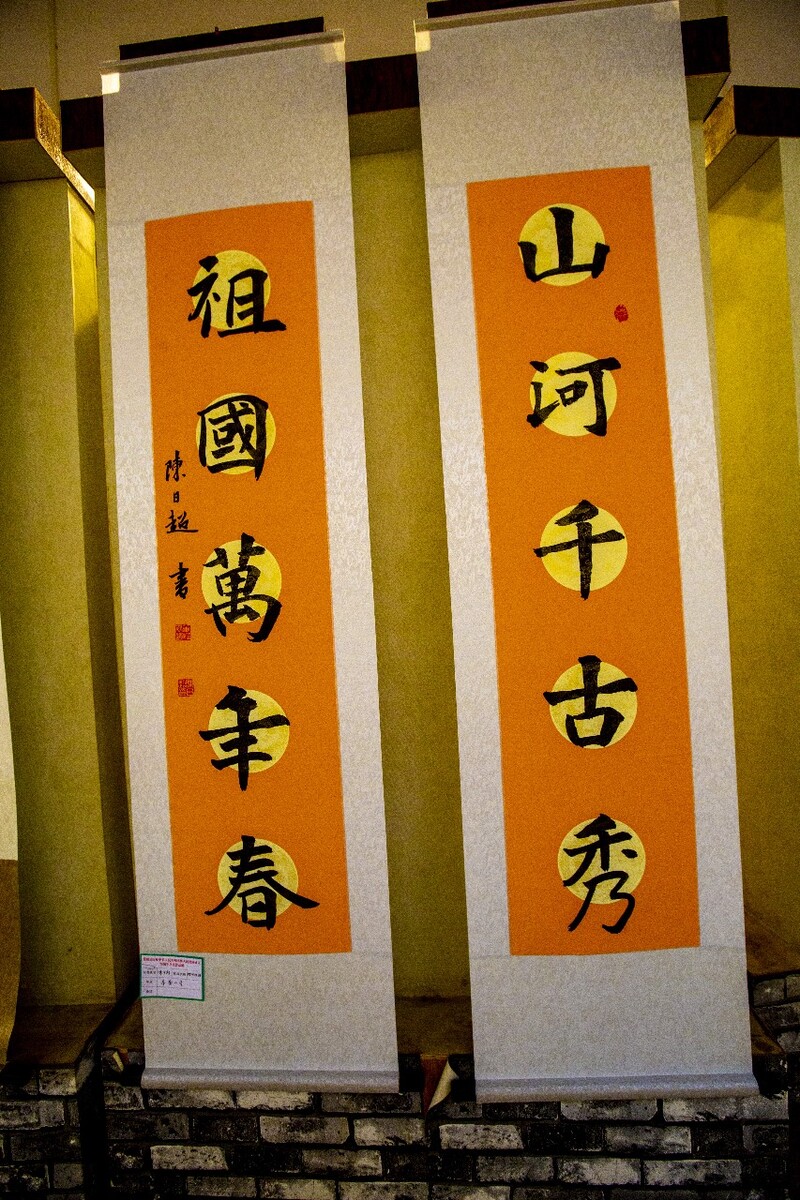 山河千古秀
祖國萬年春
陳日超 書